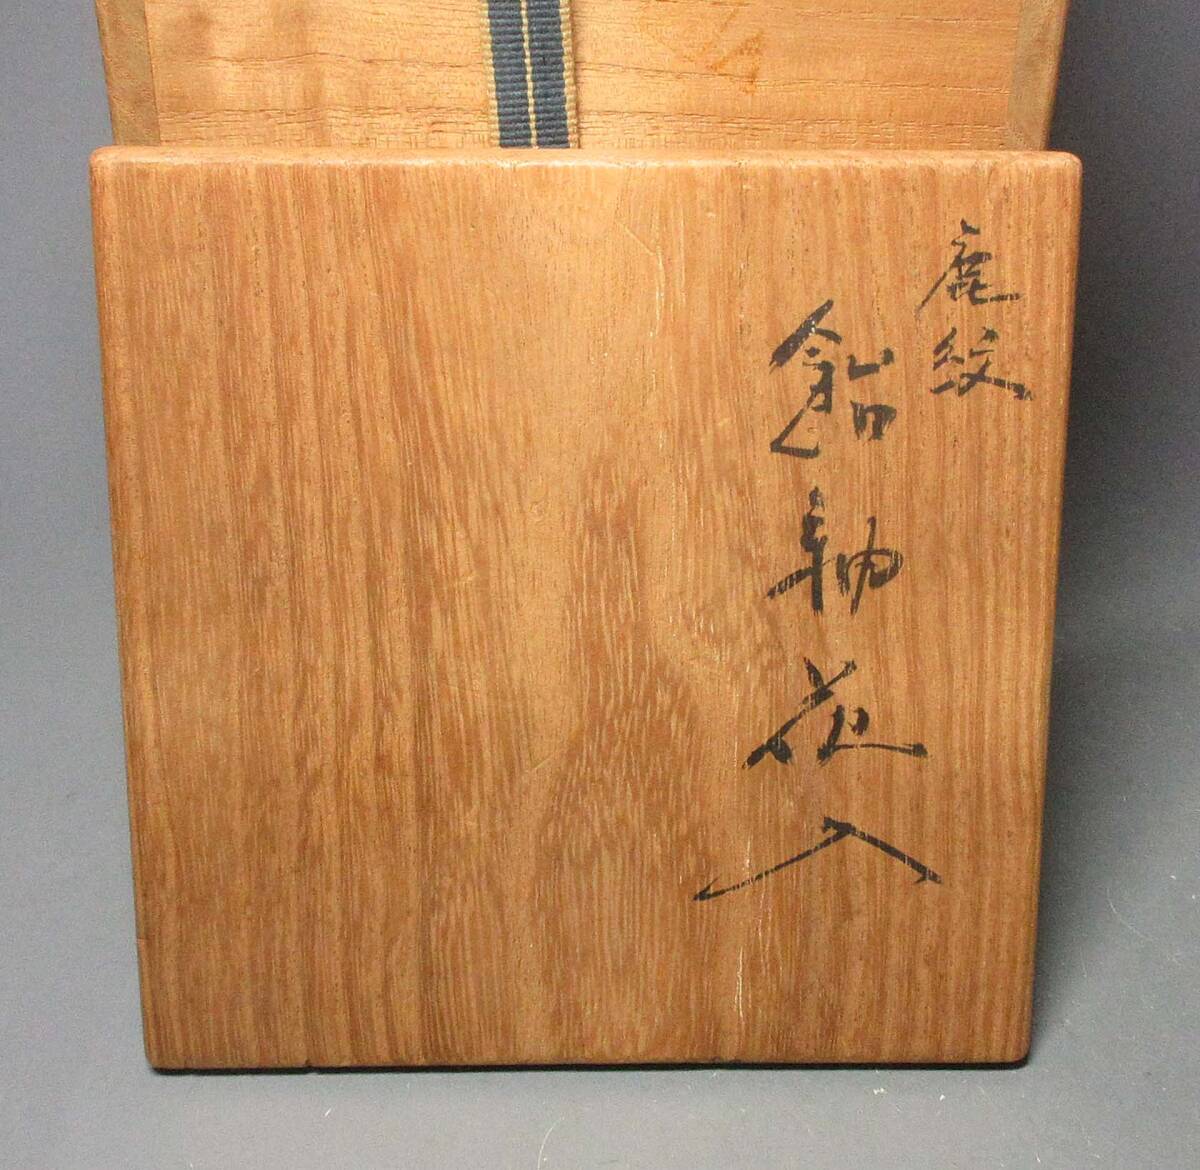 鹿紋
飴釉花入